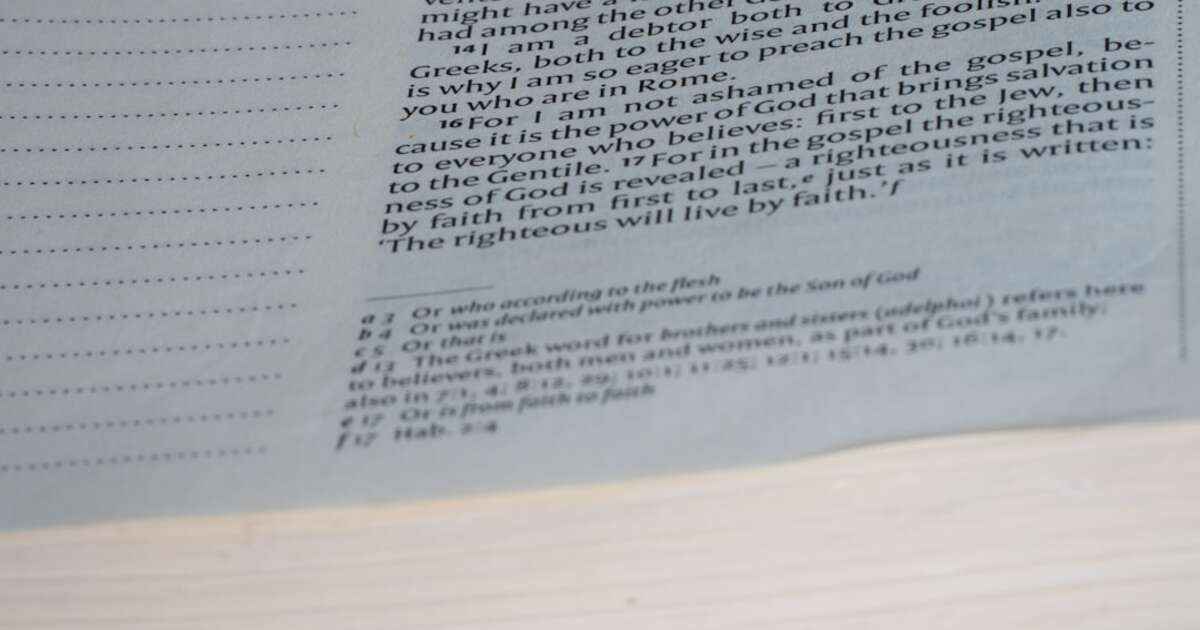 might have a
had among the other
14 I am a debtor both to
Greeks, both to the wise and the foolish.
is why I am so eager to preach the gospel also to
you who are in Rome.
16 For I am not ashamed of the gospel, be-
cause it is the power of God that brings salvation
to everyone who believes: first to the Jew, then
to the Gentile. 17 For in the gospel the righteous-
ness of God is revealed – a righteousness that is
by faith from first to last,e just as it is written:
‘The righteous will live by faith.’f
a 3 Or who according to the flesh
b 4 Or was declared with power to be the Son of God
c 5 Or that is
d 13 The Greek word for brothers and sisters (adelphoi) refers here
to believers, both men and women, as part of God's family;
also in 7:1, 4; 8:12, 29; 10:1; 11:25; 12:1; 15:14, 30; 16:14, 17.
e 17 Or is from faith to faith
f 17 Hab. 2:4